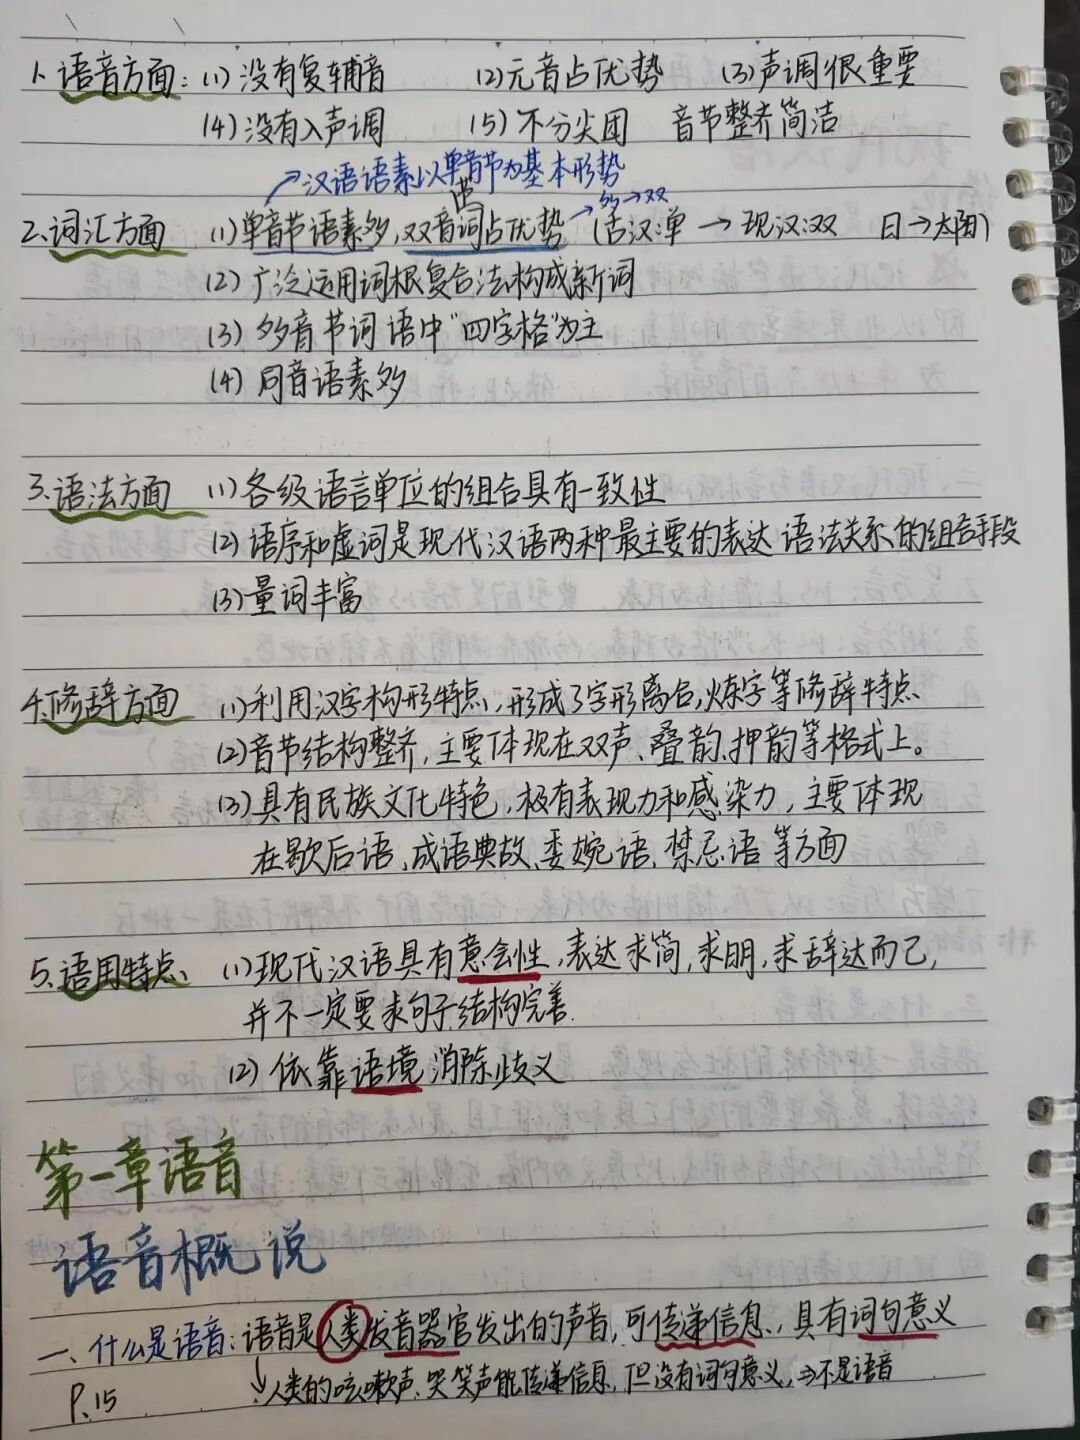 1、语音方面：(1) 没有复辅音 (2) 元音占优势 (3) 声调很重要
(4) 没有入声调 (5) 不分尖团 音节整齐简洁
汉语语素以单音节为基本形势
多→双
2、词汇方面 (1) 单音节语素多，双音词占优势 (古汉：单 → 现汉：双 日→太阳)
(2) 广泛运用词根复合法构成新词
(3) 多音节词语中“四字格”为主
(4) 同音语素多
3、语法方面 (1) 各级语言单位的组合具有一致性
(2) 语序和虚词是现代汉语两种最主要的表达语法关系的组合手段
(3) 量词丰富
4、修辞方面 (1) 利用汉字构形特点，形成了字形离合，炼字等修辞特点
(2) 音节结构整齐，主要体现在双声、叠韵、押韵等格式上。
(3) 具有民族文化特色，极有表现力和感染力，主要体现
在歇后语、成语典故、委婉语、禁忌语等方面
5、语用特点、 (1) 现代汉语具有意会性，表达求简，求明，求辞达而已，
并不一定要求句子结构完善.
(2) 依靠语境消除歧义
第一章语音
语音概说
一、什么是语音：语音是人类发音器官发出的声音，可传递信息，具有词句意义
P.15 人类的咳嗽声、哭笑声能传递信息，但没有词句意义，⇒不是语音